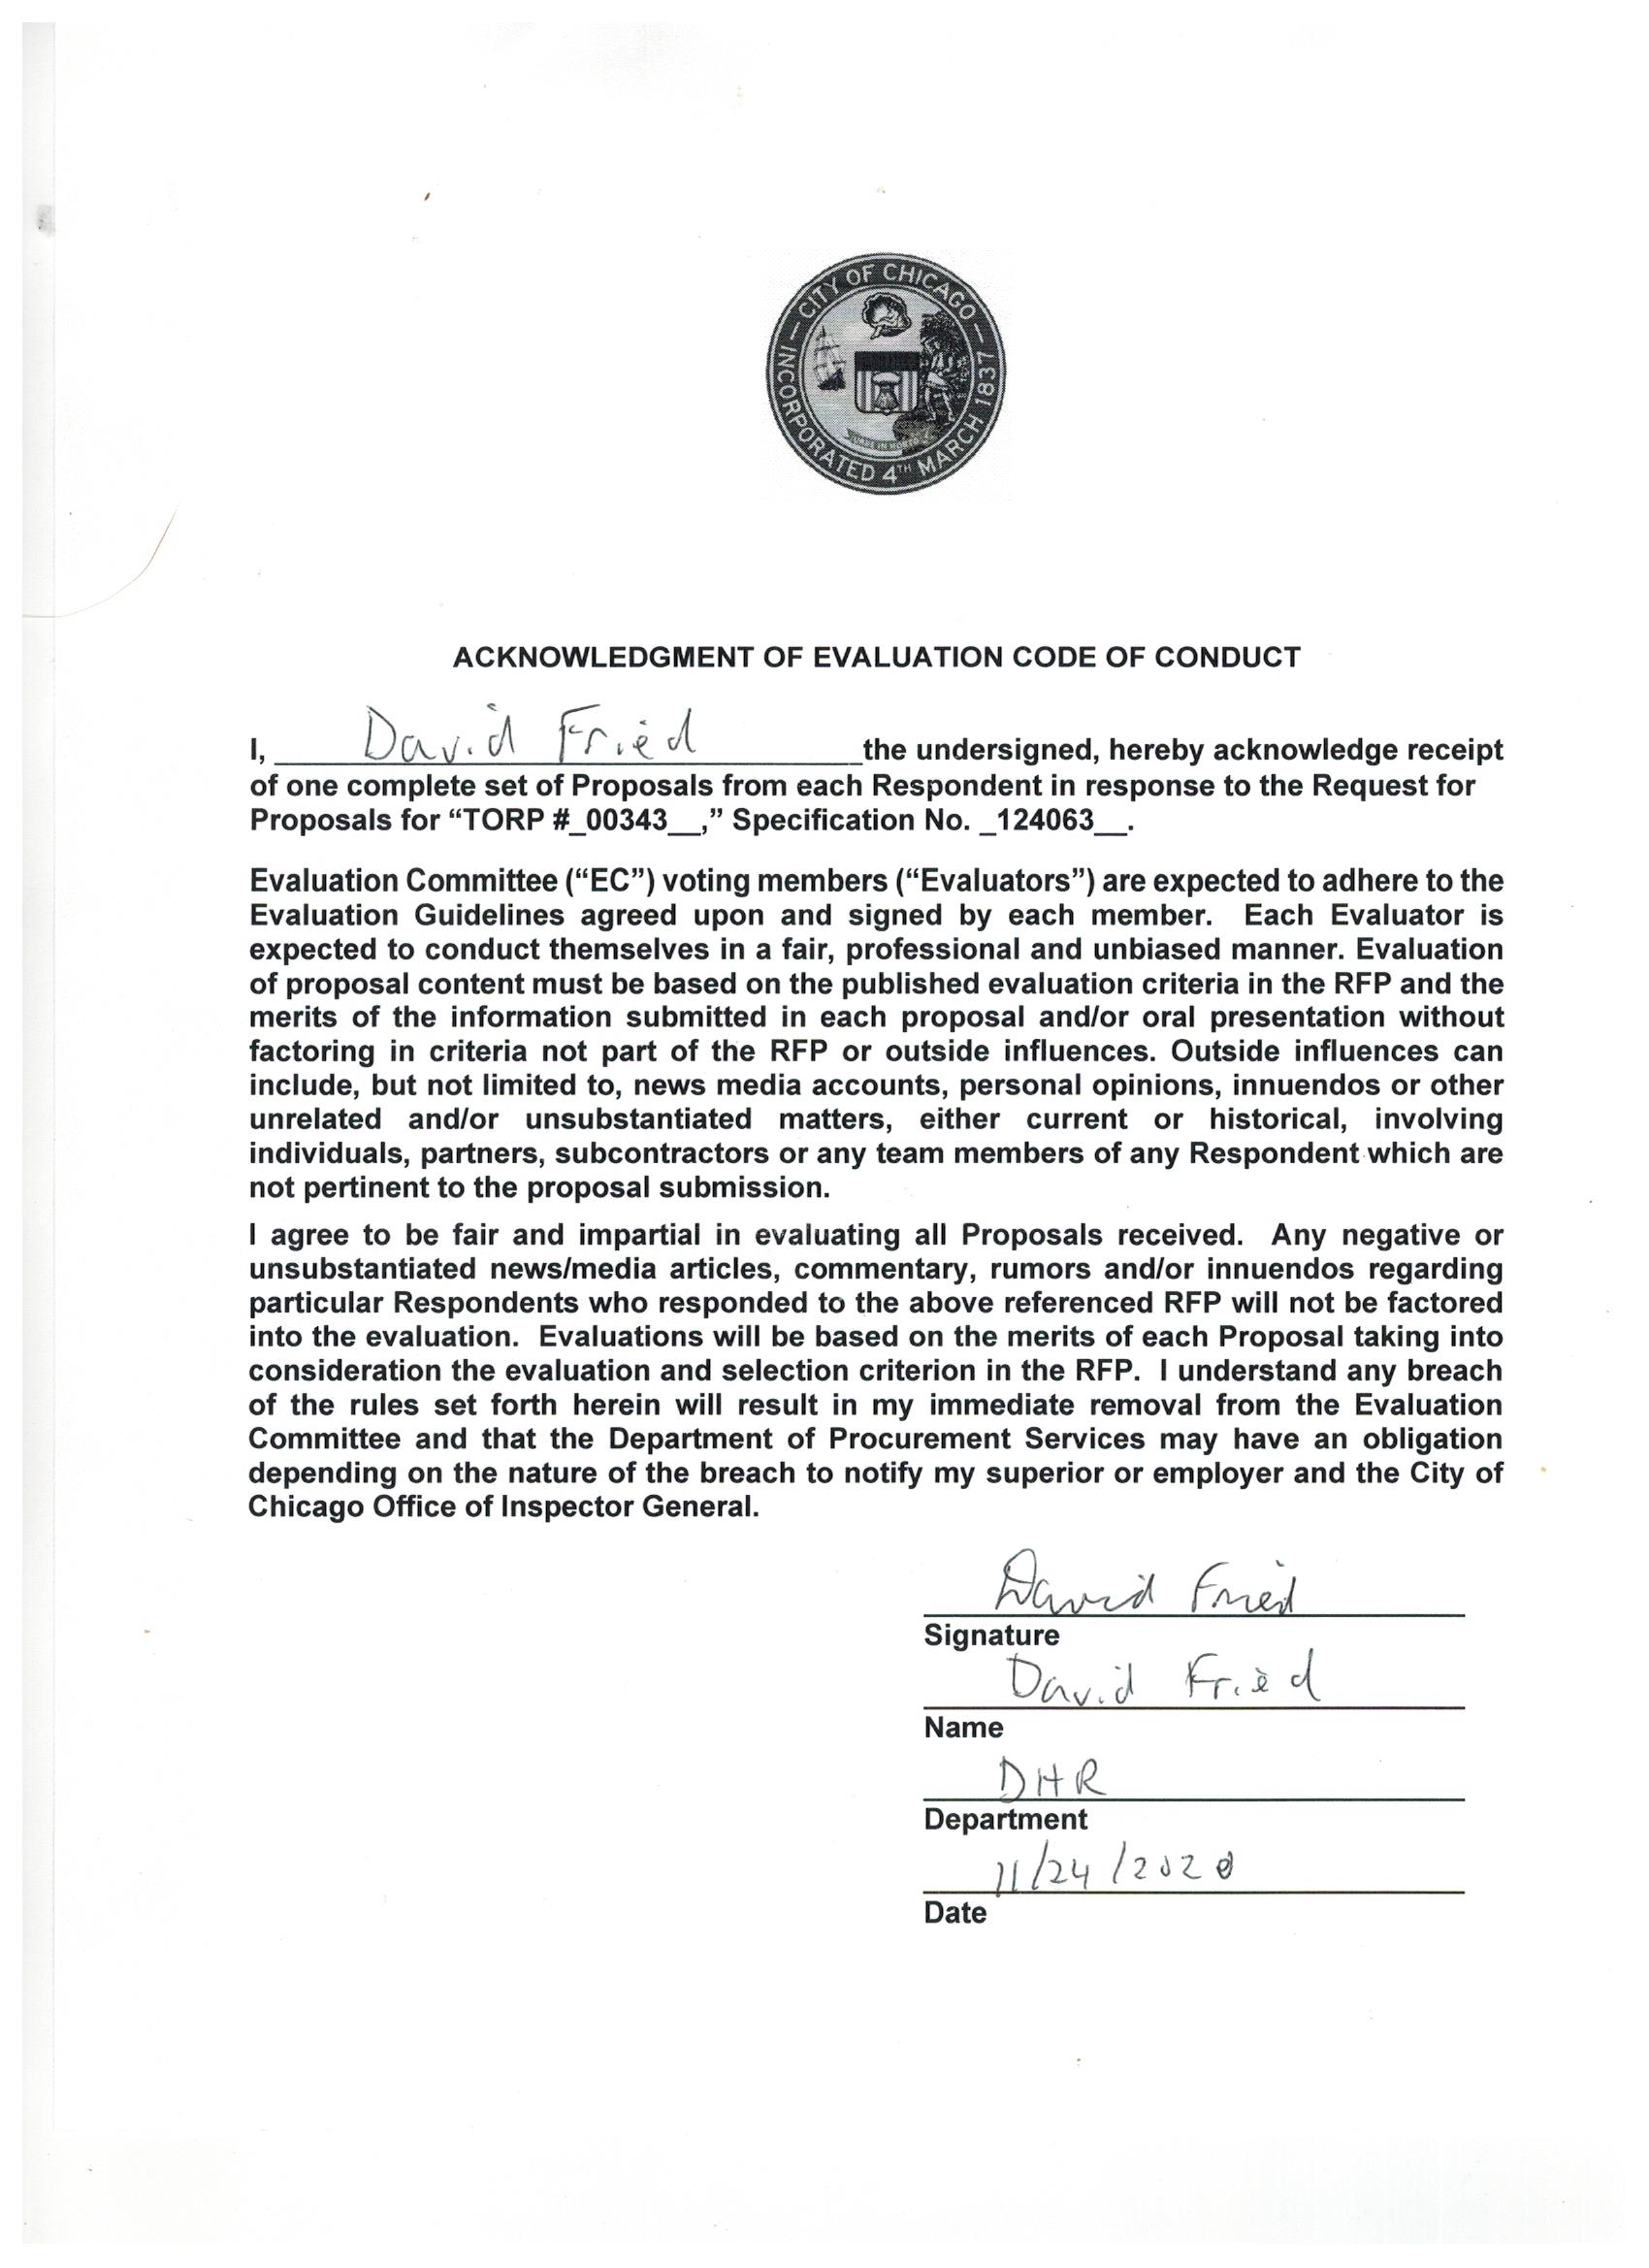 CITY OF CHICAGO
INCORPORATED 4TH MARCH 1837
ACKNOWLEDGMENT OF EVALUATION CODE OF CONDUCT
I, David Fried the undersigned, hereby acknowledge receipt
of one complete set of Proposals from each Respondent in response to the Request for
Proposals for “TORP #_00343__,” Specification No. _124063__.
Evaluation Committee (“EC”) voting members (“Evaluators”) are expected to adhere to the
Evaluation Guidelines agreed upon and signed by each member. Each Evaluator is
expected to conduct themselves in a fair, professional and unbiased manner. Evaluation
of proposal content must be based on the published evaluation criteria in the RFP and the
merits of the information submitted in each proposal and/or oral presentation without
factoring in criteria not part of the RFP or outside influences. Outside influences can
include, but not limited to, news media accounts, personal opinions, innuendos or other
unrelated and/or unsubstantiated matters, either current or historical, involving
individuals, partners, subcontractors or any team members of any Respondent which are
not pertinent to the proposal submission.
I agree to be fair and impartial in evaluating all Proposals received. Any negative or
unsubstantiated news/media articles, commentary, rumors and/or innuendos regarding
particular Respondents who responded to the above referenced RFP will not be factored
into the evaluation. Evaluations will be based on the merits of each Proposal taking into
consideration the evaluation and selection criterion in the RFP. I understand any breach
of the rules set forth herein will result in my immediate removal from the Evaluation
Committee and that the Department of Procurement Services may have an obligation
depending on the nature of the breach to notify my superior or employer and the City of
Chicago Office of Inspector General.
David Fried
Signature
David Fried
Name
DHR
Department
11/24/2020
Date